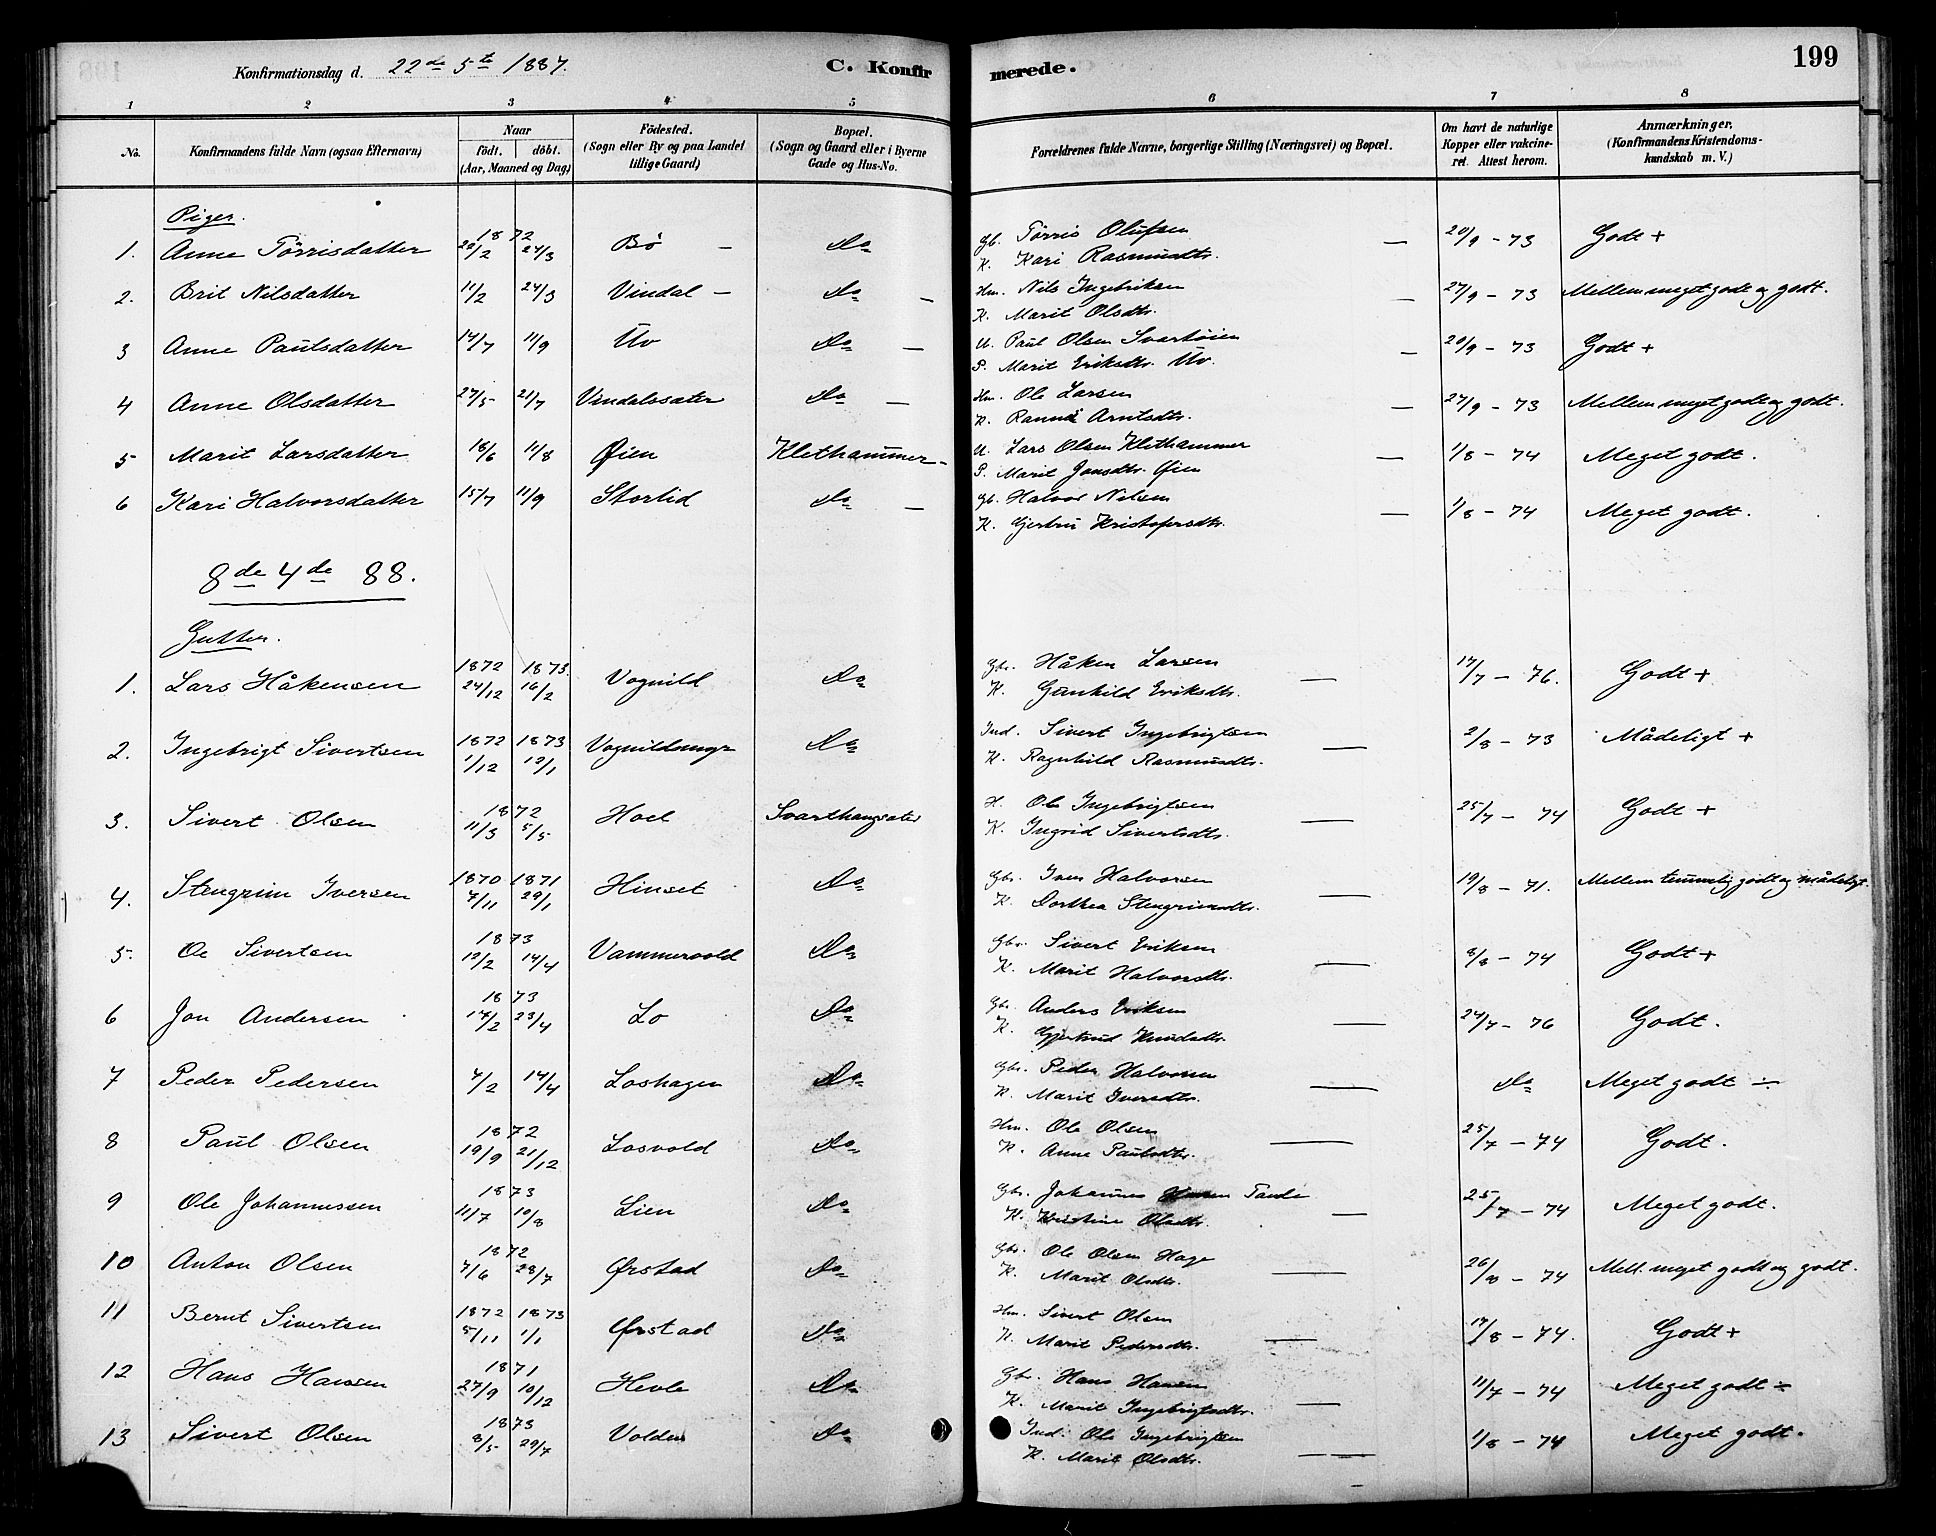 Konfirmationsdag d. 22de 5te 1887. C. Konfirmerede. 199
1 2 3 4 5 6 7 8
No. Konfirmandens fulde Navn (ogsaa Efternavn) Naar födt. döbt. (Aar, Maaned og Dag) Födested. (Sogn eller By og paa Landet tillige Gaard) Bopæl. (Sogn og Gaard eller i Byerne Gade og Hus-No. Forældrenes fulde Navne, borgerlige Stilling (Næringsvei) og Bopæl. Om havt de naturlige Kopper eller vakcineret. Attest herom. Anmærkninger. (Konfirmandens Kristendomskundskab m. V.)
Piger.
1872
1. Anne Tørrisdatter 20/2 24/3 Bö – Do Gb. Törris Olufsen K. Kari Rasmusdtr. — 20/9 - 73 Godt +
2. Brit Nilsdatter 11/2 24/3 Vindal – Do – Hm. Nils Ingebriksen K. Marit Olsdtr. — 27/9 - 73 Mellem meget godt og godt.
3 Anne Paulsdatter 14/7 11/9 Uv Do – U. Paul Olsen Svartøien P. Marit Eriksdtr. Uv. — 20/9 - 73 Godt +
4 Anne Olsdatter 27/5 21/7 Vindalssæter Do – Hm. Ole Larsen K. Arntsdtr. — 27/9 - 73 Mellem meget godt og godt.
5 Marit Larsdatter 18/6 11/8 Øien Klethammer – U. Lars Olsen Klethammer P. Marit Jonsdtr. Øien — 1/8 - 74 Meget godt.
6 Kari Halvorsdatter 15/7 11/9 Storlid Do – Gb. Halvor Nilsen K. Gjertru Kristofersdtr. — 1/8 - 74 Meget godt.
8de 4de 88.
Gutter.
1872 1873.
1. Lars Håkensen 24/12 16/2 Vognild Do Gbr. Håken Larsen K. Gunhild Eriksdtr. — 17/7 - 76. Godt +
1872 1873
2. Ingebrigt Sivertsen 1/12 12/1 Do Ind. Sivert Ingebrigtsen K. Ragnhild Rasmusdtr. — 2/8 - 73 Mådeligt +
1872
3. Sivert Olsen 11/3 5/5 Hoel Svarthaugsæter H. Ole Ingebrigtsen K. Ingrid Sivertsdtr. — 25/7 - 74 Godt +
1870 1871
4. Stengrim Iversen 7/11 29/1 Hinset Do Gbr. Iver Halvorsen K. Dorthea Stengrimsdtr. — 19/8 - 71. Mellem temmelig godt og mådeligt.
1873
5. Ole Sivertsen 12/2 14/4 Vammervold Do Gbr. Sivert Eriksen K. Marit Halvorsdtr. — 8/8 - 74 Godt +
1873
6 Jon Andersen 14/2 23/4 Lo Do Gbr. Anders Eriksen K. Gjertrud Knudsdtr. — 24/7 - 76 Godt.
7 Peder Pedersen 4/2 14/4 Loshagen Do Gbr. Peder Halvorsen K. Marit Iversdtr. — Do Meget godt ÷
1872
8 Paul Olsen 19/9 21/12 Losvold Do Hm. Ole Olsen K. Anne Paulsdtr. — 25/7 - 74 Godt.
1873
9 Ole Johannessen 11/7 10/8 Lien Do Gbr. Johannes Hansen K. Kristine Olsdtr. — 25/7 - 74 Meget godt.
1872
10 Anton Olsen 7/6 28/7 Ørstad Do Gbr. Ole Olsen Hage K. Marit Olsdtr. — 26/8 - 74 Mell. meget godt og godt.
1872 1873
11 Bernt Sivertsen 5/11 1/1 Ørstad Do Hm. Sivert Olsen K. Marit Pedersdtr. — 17/8 - 74. Godt +
1871
12 Hans Hansen 27/9 10/12 Hevle Do Gbr. Hans Hansen K. Marit Ingebrigtsdtr. — 11/7 - 74 Meget godt ÷
1873
13 Sivert Olsen 8/5 29/7 Volden Do Ind. Ole Ingebrigtsen K. Marit Olsdtr. — 1/8 - 74 Meget godt.